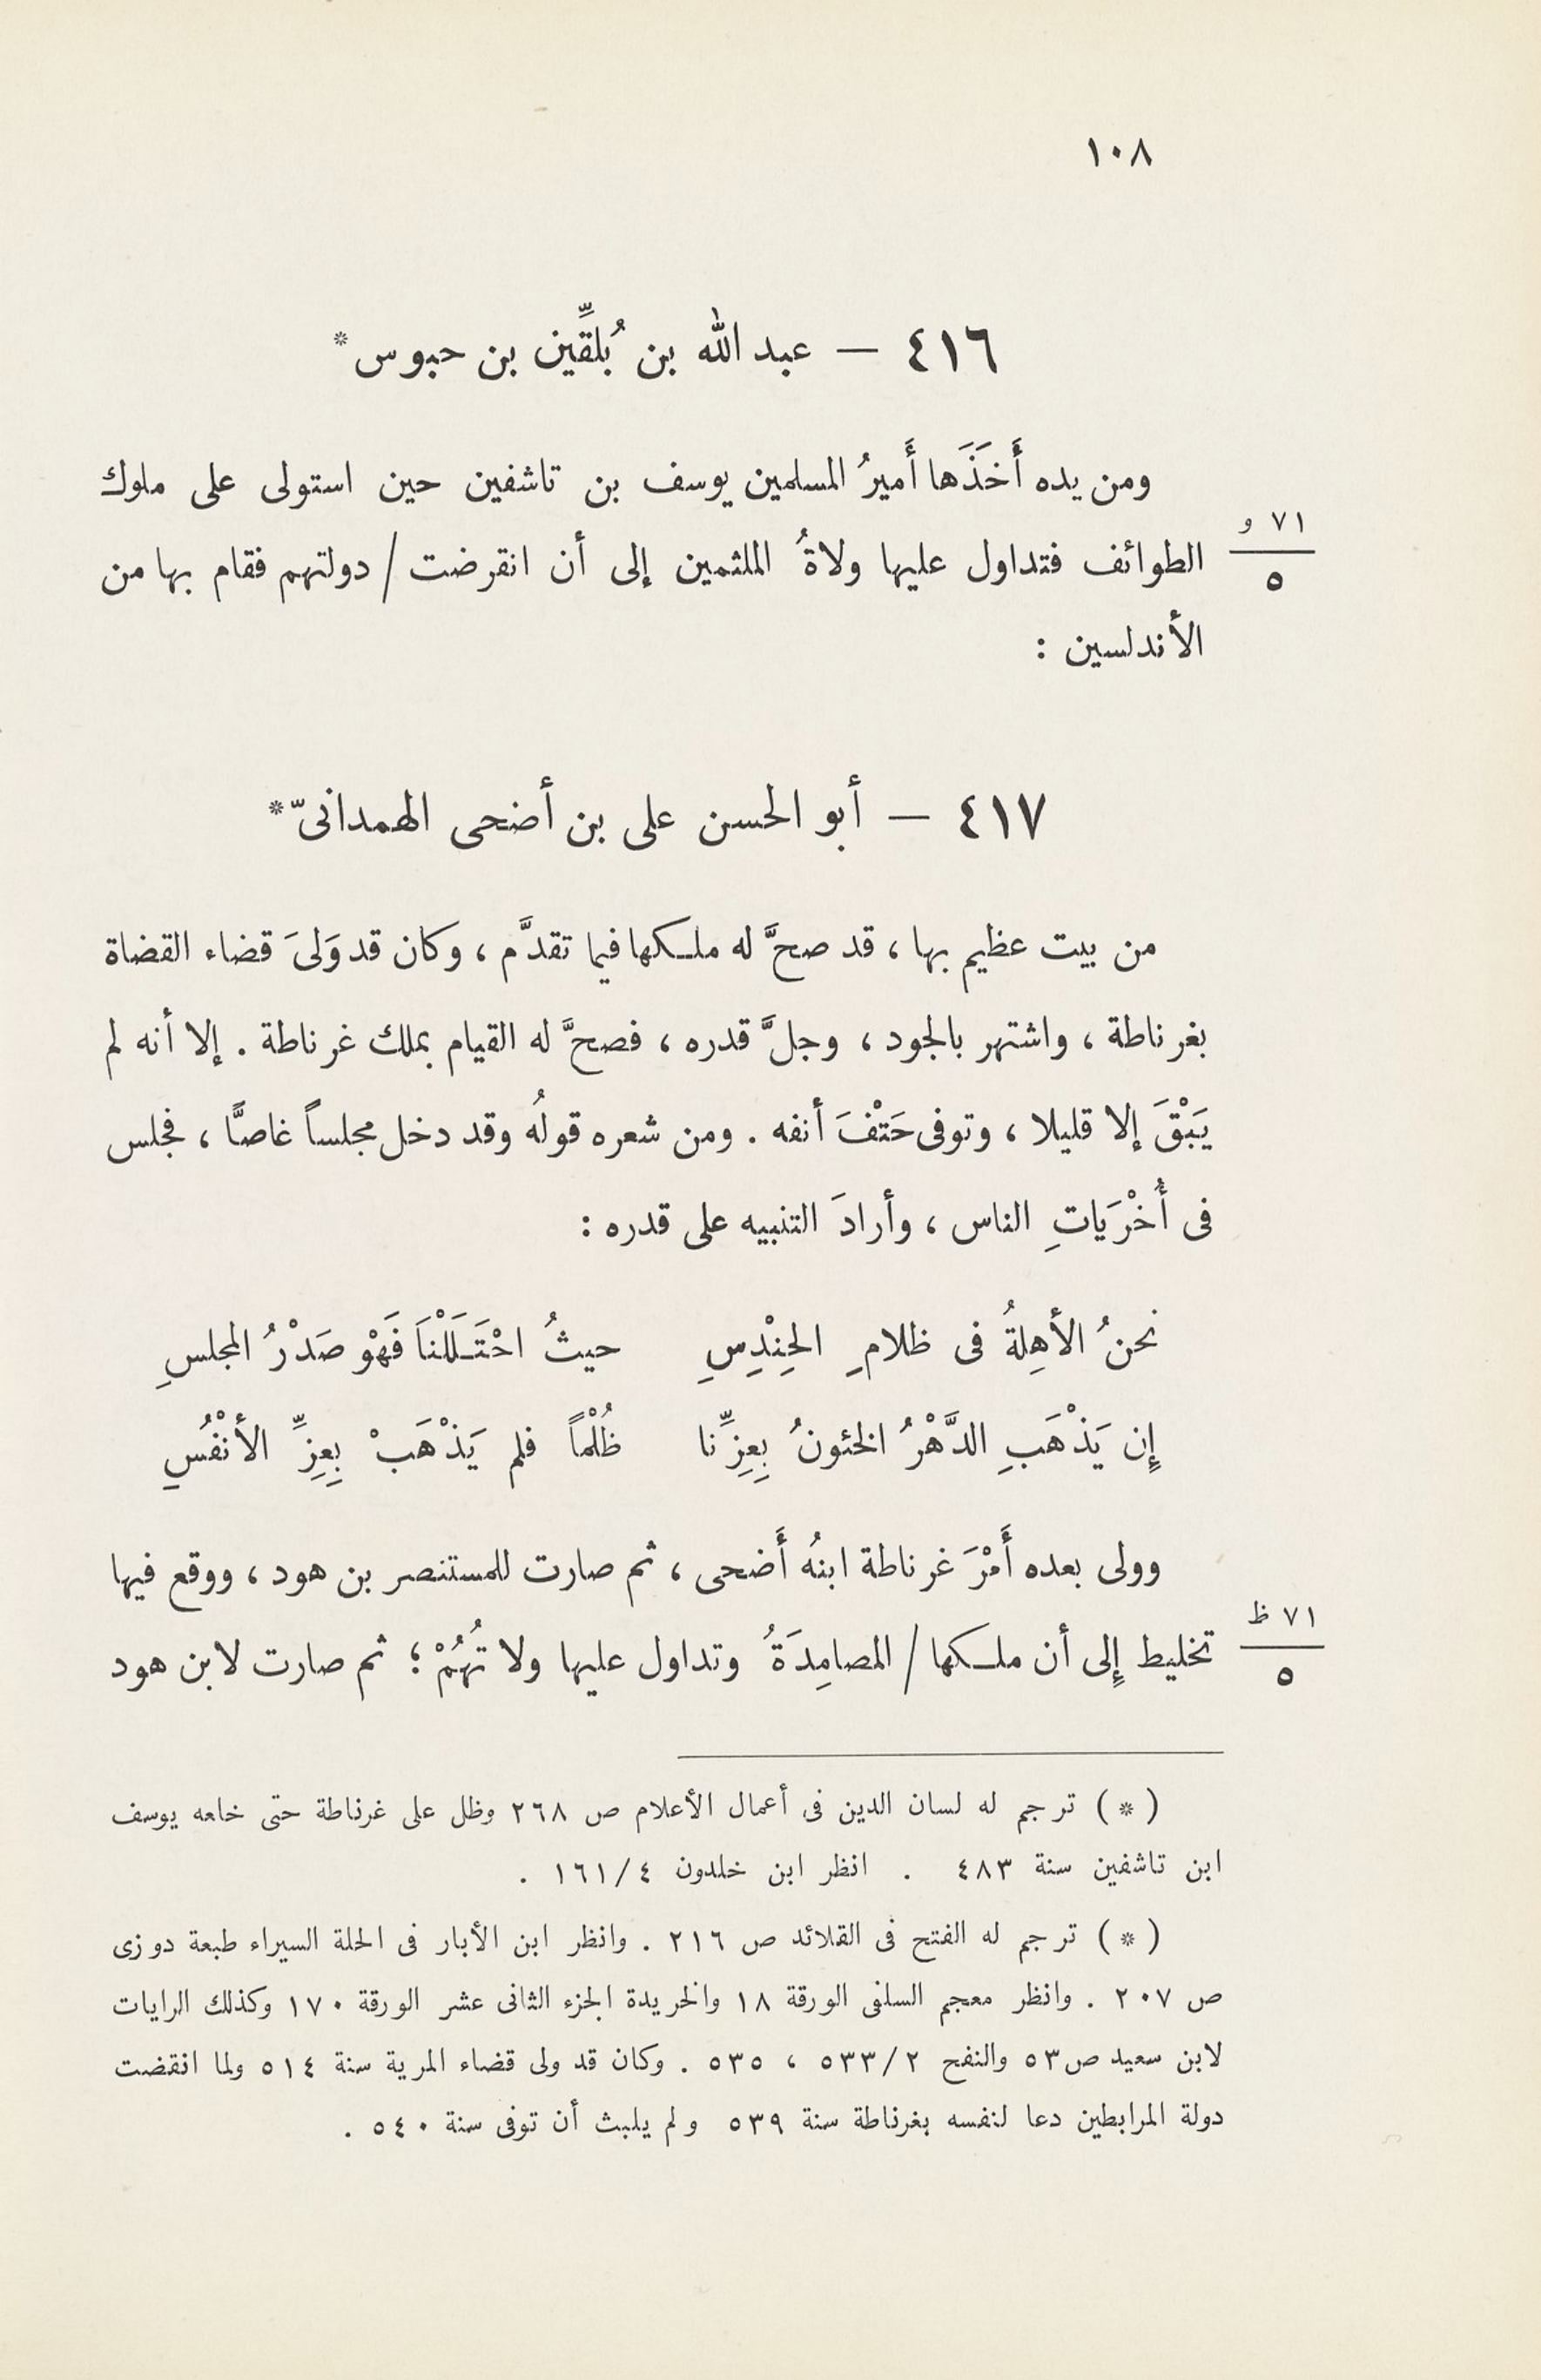 ١٠٨
٤١٦ — عبد الله بن بُلقِّين بن حبوس*
ومن يده أَخَذَها أَميرُ المسلمين يوسف بن تاشفين حين استولى على ملوك
٧١ و
٥
الطوائف فتداول عليها ولاةُ الملثمين إلى أن انقرضت / دولتهم فقام بها من
الأندلسين :
٤١٧ — أبو الحسن على بن أضحى الهمدانىّ*
من بيت عظيم بها ، قد صحَّ له ملكها فيما تقدَّم ، وكان قد وَلىَ قضاء القضاة
بغرناطة ، واشتهر بالجود ، وجلَّ قدره ، فصحَّ له القيام بملك غرناطة . إلا أنه لم
يَبْقَ إلا قليلا ، وتوفى حَتْفَ أنفه . ومن شعره قولُه وقد دخل مجلساً غاصًّا ، فجلس
فى أُخْرَياتِ الناس ، وأرادَ التنبيه على قدره :
نحنُ الأهِلةُ فى ظلامِ الحِنْدِسِ حيثُ احْتَلَلْنَا فَهْوَ صَدْرُ المجلسِ
إِن يَذْهَبِ الدَّهْرُ الخئونُ بِعِزِّنا ظُلْماً فلم يَذْهَبْ بِعِزِّ الأنْفُسِ
وولى بعده أَمْرَ غرناطة ابنُه أَضحى ، ثم صارت للمستنصر بن هود ، ووقع فيها
٧١ ظ
٥
تخليط إِلى أن ملكها / المصامِدَةُ وتداول عليها ولا تُهُمْ ؛ ثم صارت لابن هود
( * ) ترجم له لسان الدين فى أعمال الأعلام ص ٢٦٨ وظل على غرناطة حتى خلعه يوسف
ابن تاشفين سنة ٤٨٣ . انظر ابن خلدون ٤/١٦١ .
( * ) ترجم له الفتح فى القلائد ص ٢١٦ . وانظر ابن الأبار فى الحلة السيراء طبعة دوزى
ص ٢٠٧ . وانظر معجم السلفى الورقة ١٨ والخريدة الجزء الثانى عشر الورقة ١٧٠ وكذلك الرايات
لابن سعيد ص٥٣ والنفح ٢/٥٣٣ ، ٥٣٥ . وكان قد ولى قضاء المرية سنة ٥١٤ ولما انقضت
دولة المرابطين دعا لنفسه بغرناطة سنة ٥٣٩ ولم يلبث أن توفى سنة ٥٤٠ .